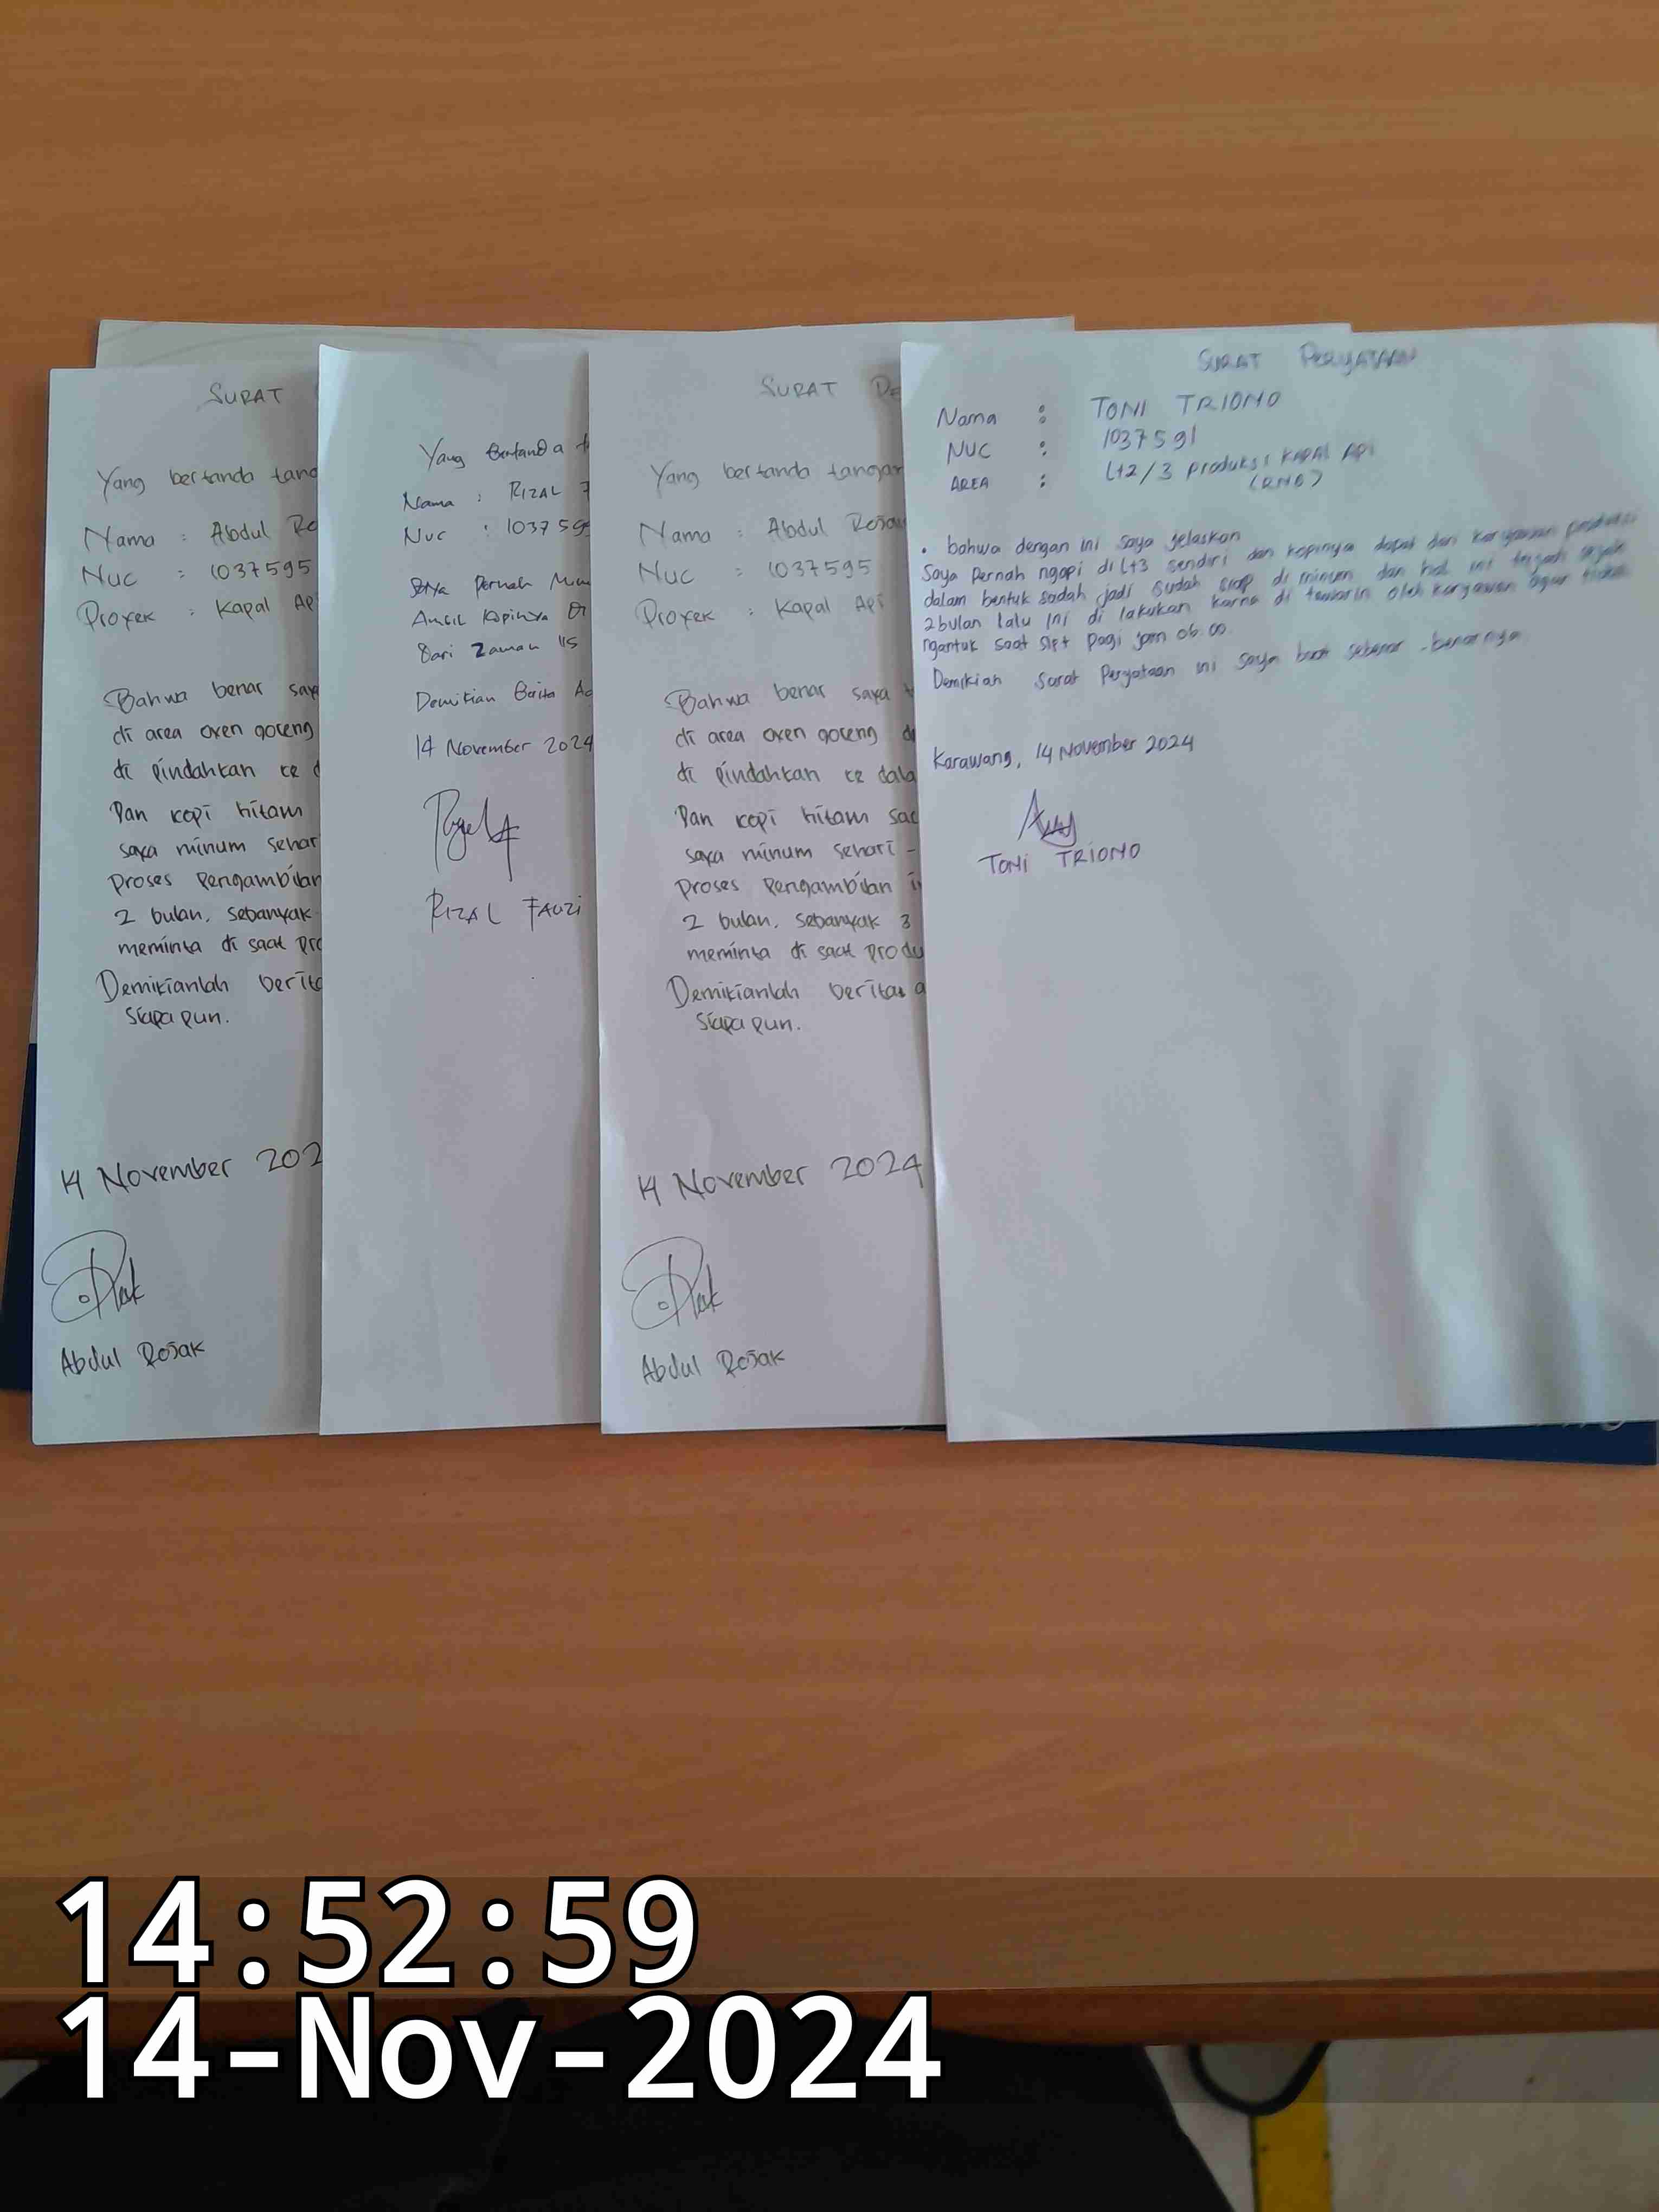 SURAT
Yang bertanda tang
Nama : Abdul Ro
Nuc : 1037595
Proyek : Kapal Ap
Bahwa benar say
di area oven goreng
di pindahkan ke d
Dan kopi hitam
saya minum sehar
proses pengambilan
2 bulan. sebanyak
meminta di saat pro
Demikianlah berita
siapa pun.
14 November 202
Abdul Rojak
Yang Bertanda t
Nama : RIZAL F
Nuc : 103759
Saya pernah Min
Ambil Kopinya Di
Dari Zaman
Demikian Berita Ac
14 November 2024
RIZAL FAUZI
SURAT Pe
Yang bertanda tangan
Nama : Abdul Roja
Nuc : 1037595
Proyek : Kapal Api
Bahwa benar saya
di area oven goreng d
di pindahkan ke dala
Dan kopi hitam sac
saya minum sehari -
proses pengambilan i
2 bulan. sebanyak 3
meminta di saat produ
Demikianlah berita a
siapa pun.
14 November 2024
Abdul Rojak
SURAT PERYATAAN
Nama : TONI TRIONO
NUC : 1037591
AREA : Lt2/3 produksi KAPAL API
(RNB)
• bahwa dengan ini saya jelaskan
Saya Pernah ngopi di Lt3 sendiri dan kopinya dapat dari karyawan produksi
dalam bentuk sudah jadi sudah siap di minum dan hal ini terjadi sejak
2bulan lalu ini di lakukan karna di tawarin oleh karyawan agar tidak
ngantuk saat sift pagi jam 06.00.
Demikian surat Peryataan ini saya buat sebenar-benarnya
Karawang, 14 November 2024
TONI TRIONO
14:52:59
14-Nov-2024